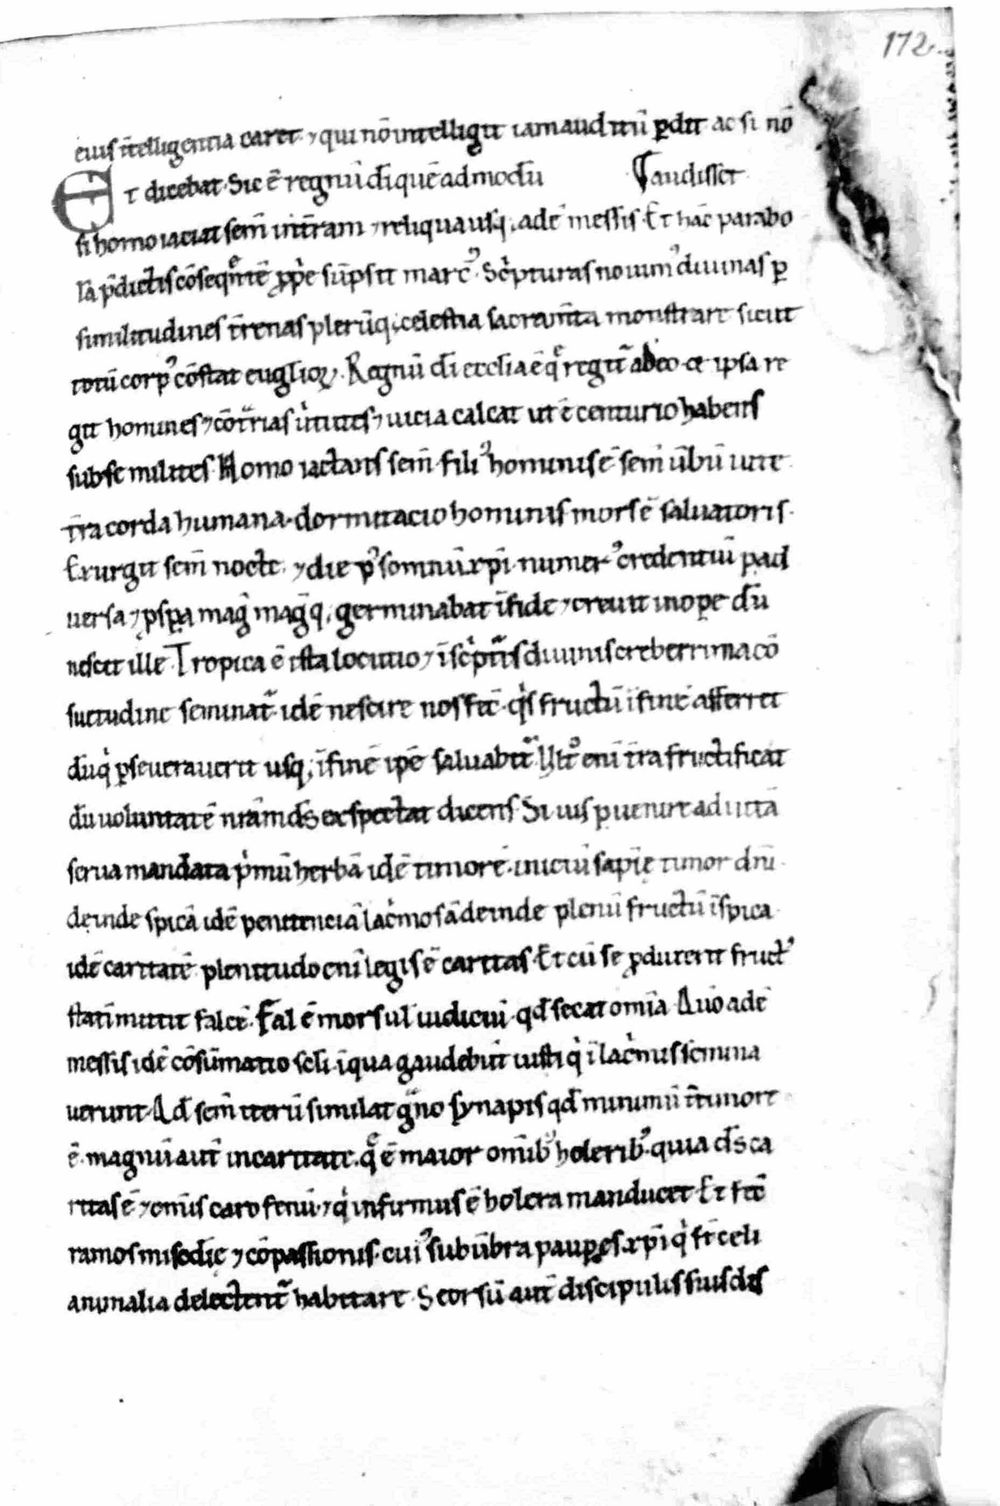 172
eius ītelligentia caret ⁊ qui nō intelligit iam auditū ꝑdit ac si nō
Et dicebat. Sic ē regnū di quēadmodū audisset
si homo iaciat sem̄ in t̄ram ⁊ reliqua usq; ad ē messis. Et hāc parabo
lā p̄dictis cōseqn̄tē ꝓpe sūpsit marc᾿. Scͥpturas nouim᾿ diuinas ꝑ
similitudines t̄renas plerūq; celestia sacram̄ta monstrare sicut
totū corp᾿ cōstat eugl̄ioꝝ. Regnū di eccl̄ia ē q̄ regit᷑ a deo ⁊ ipsa re
git homines ⁊ cōt᷑rias uͥtutes ⁊ uicia calcat ut ē centurio habens
sub se milites. Homo iactans sem̄ fili᾿ hominis ē sem̄ ūbū uite
t̄ra corda humana. dormitacio hominis mors ē saluatoris.
Exurgit sem̄ nocte ⁊ die p᾿ somnū xp̄i numer᾿ credentiū ꝑ ad
uersa ⁊ ꝓspa magͥ magͥq; germinabat ī fide ⁊ creuit in ope dū
nescit ille. Tropica ē ista locutio ⁊ ī scͥpt᷑is diuinis creberrima cō
suetudine seminat᷑ idē nescire nos fēc qͥs fructū ī fine afferret
dū qͥ ꝑseuerauerit usq; ī finē ip̄e saluabit᷑. Ult᷑ enī t̄ra fructificat
dū uoluntatē nr̄am ds̄ exspectat dicens Si uis ꝑuenire ad uitā
serua mandata pͥmū herbā idē timorē. iniciū sapīę timor dn̄i.
deinde spicā idē penitenciā lacͥmosā deinde plenū fructū ī spica
idē caritatē plenitudo enī legis ē caritas. Et cū se ꝓduxerit fruct᾿
statī mittit falcē. Fal ē mors ul iudiciū qd̄ secat om̄ia
messis idē cōsūmatio scl̄i ī qua gaudebūt iusti qͥ ī lacͥmis semina
uerunt. Ad sem̄ iterū similat gͣno synapis qd̄ minimū ī timore
ē. magnū aut̄ in caritate. q̄ ē maior om̄ib᾿ holerib᾿ quia ds̄ ca
ritas ē ⁊ om̄is caro fenū ⁊ qͥ infirmus ē holera manducet. Et fēc
ramos misc̄dię ⁊ cōpassionis. cui᾿ sub ūbra paupes xp̄i qͥ st̄ celi
animalia delectent᷑ habitare. Scorsū aut̄ discipulis suis dis